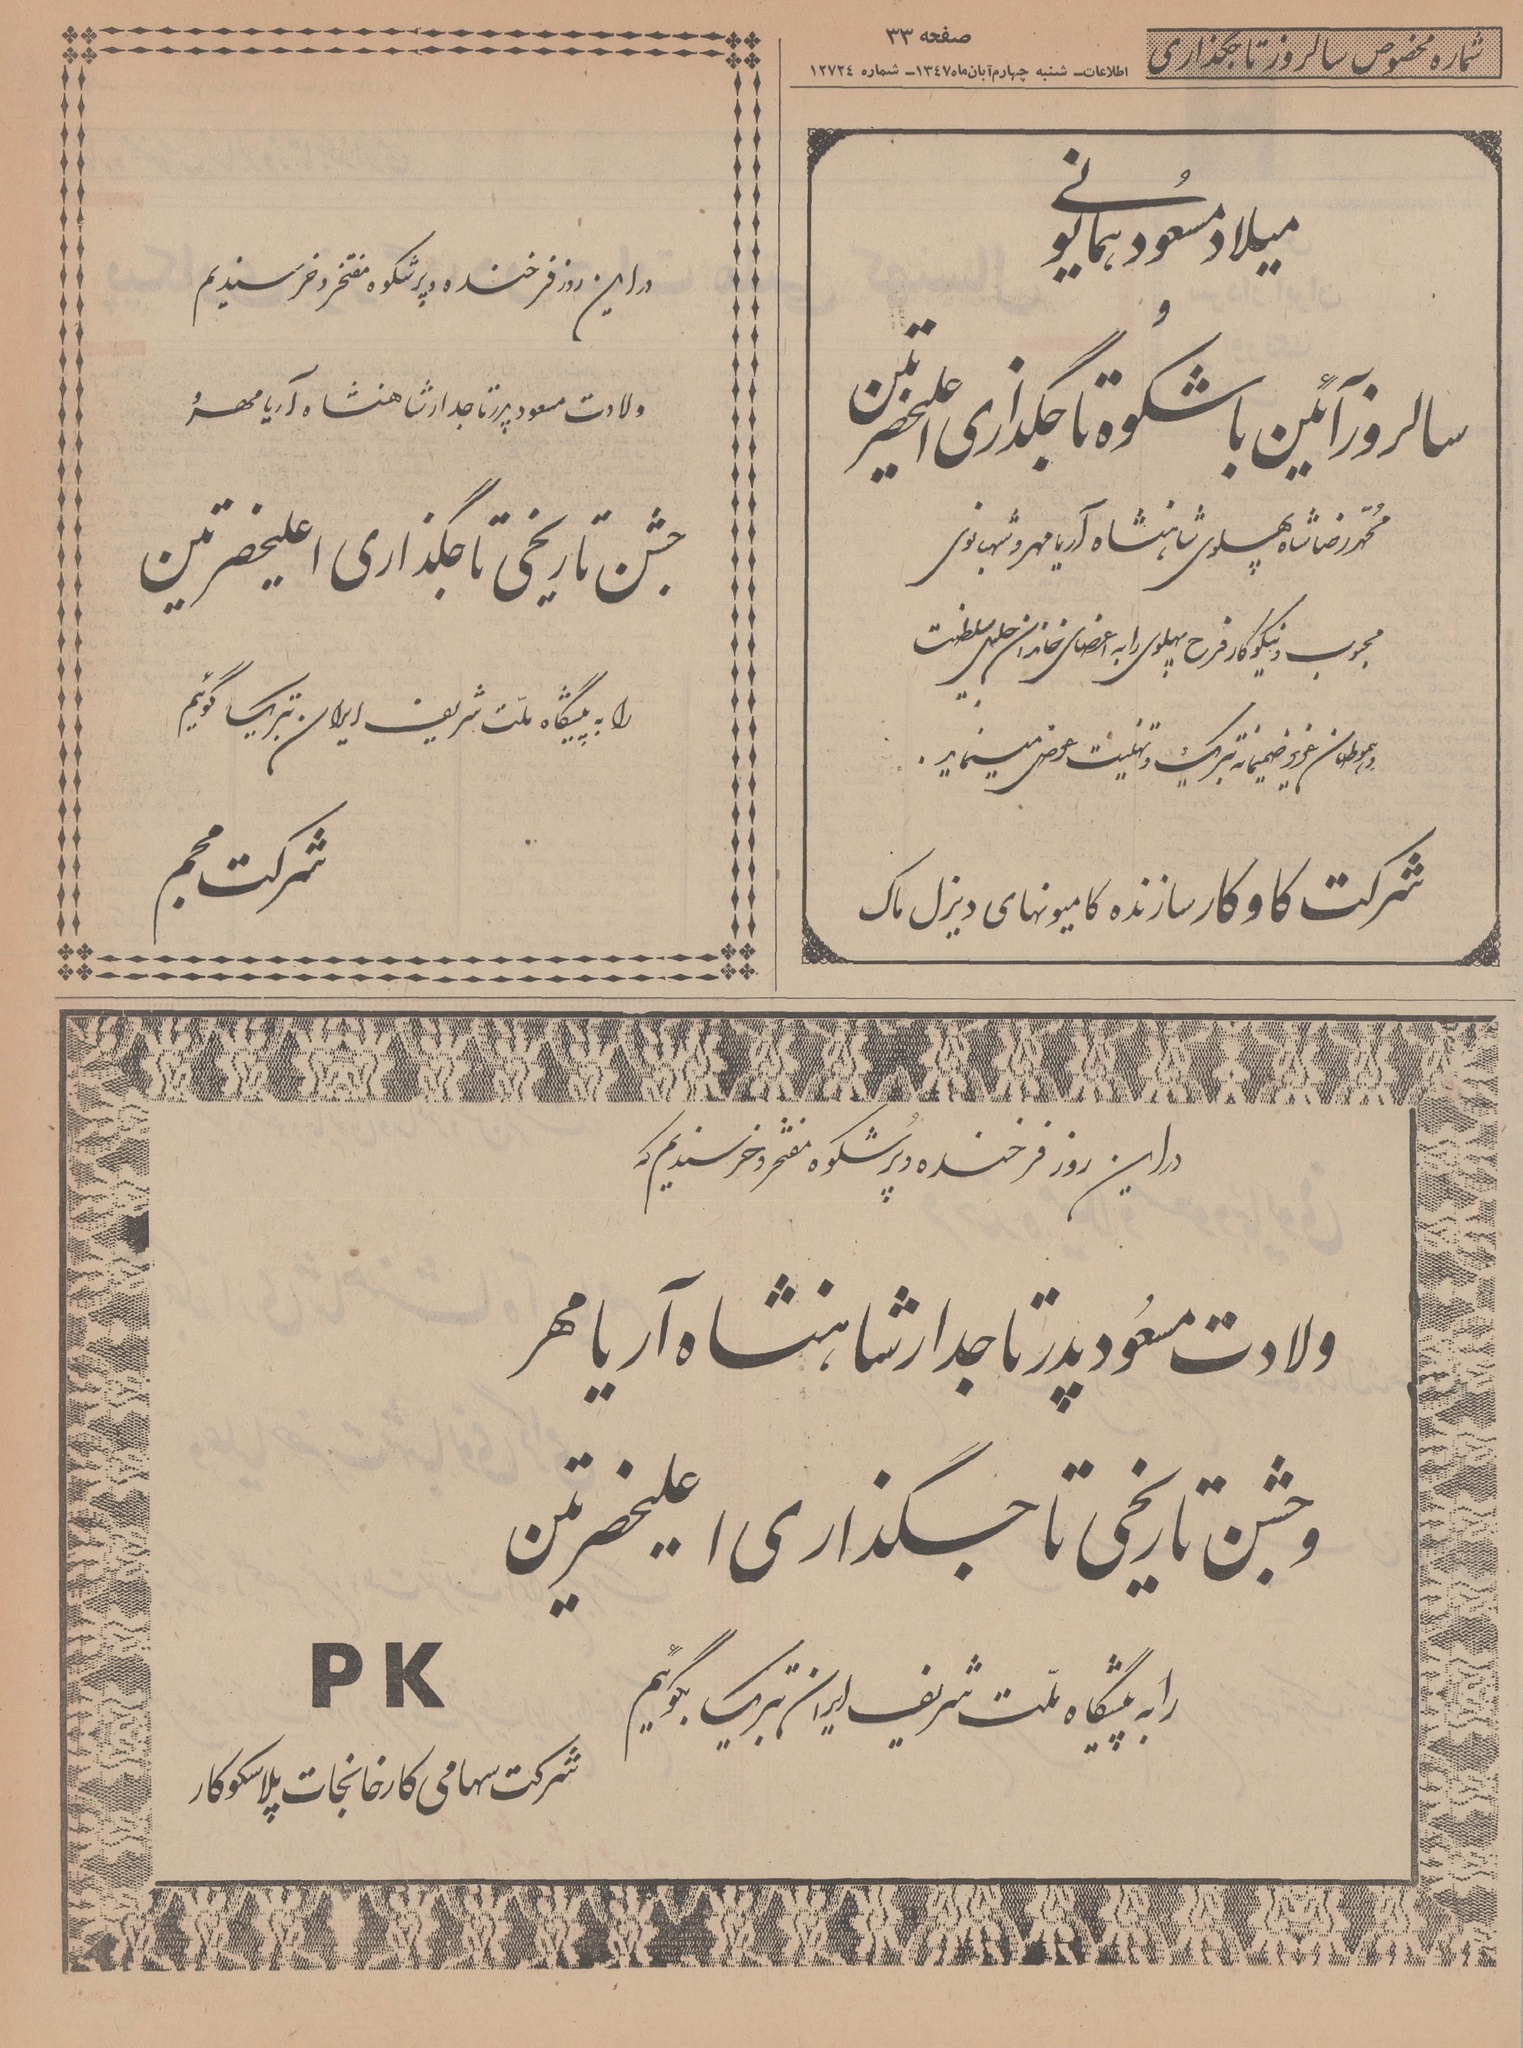 شماره مخصوص سالروز تاجگذاری
صفحه ۳۳
اطلاعات ـ شنبه چهارم آبان ماه ۱۳۴۷ ـ شماره ۱۲۷۲۴
میلاد مسعود همایونی
و
سالروز آئین با شکوه تاجگذاری اعلیحضرتین
محمدرضا شاه پهلوی شاهنشاه آریامهر و شهبانوی
محبوب و نیکوکار فرح پهلوی را به اعضای خاندان جلیل سلطنت
و هموطنان عزیز صمیمانه تبریک و تهنیت عرض مینماید.
شرکت کاوکار سازنده کامیونهای دیزل ماک
در این روز فرخنده و پرشکوه مفتخر و خرسندیم
ولادت مسعود پدر تاجدار شاهنشاه آریامهر و
جشن تاریخی تاجگذاری اعلیحضرتین
را به پیشگاه ملت شریف ایران تبریک گوئیم
شرکت مجم
در این روز فرخنده و پرشکوه مفتخر و خرسندیم که
ولادت مسعود پدر تاجدار شاهنشاه آریامهر
و جشن تاریخی تاجگذاری اعلیحضرتین
را به پیشگاه ملت شریف ایران تبریک بگوئیم
PK
شرکت سهامی کارخانجات پلاسکوکار